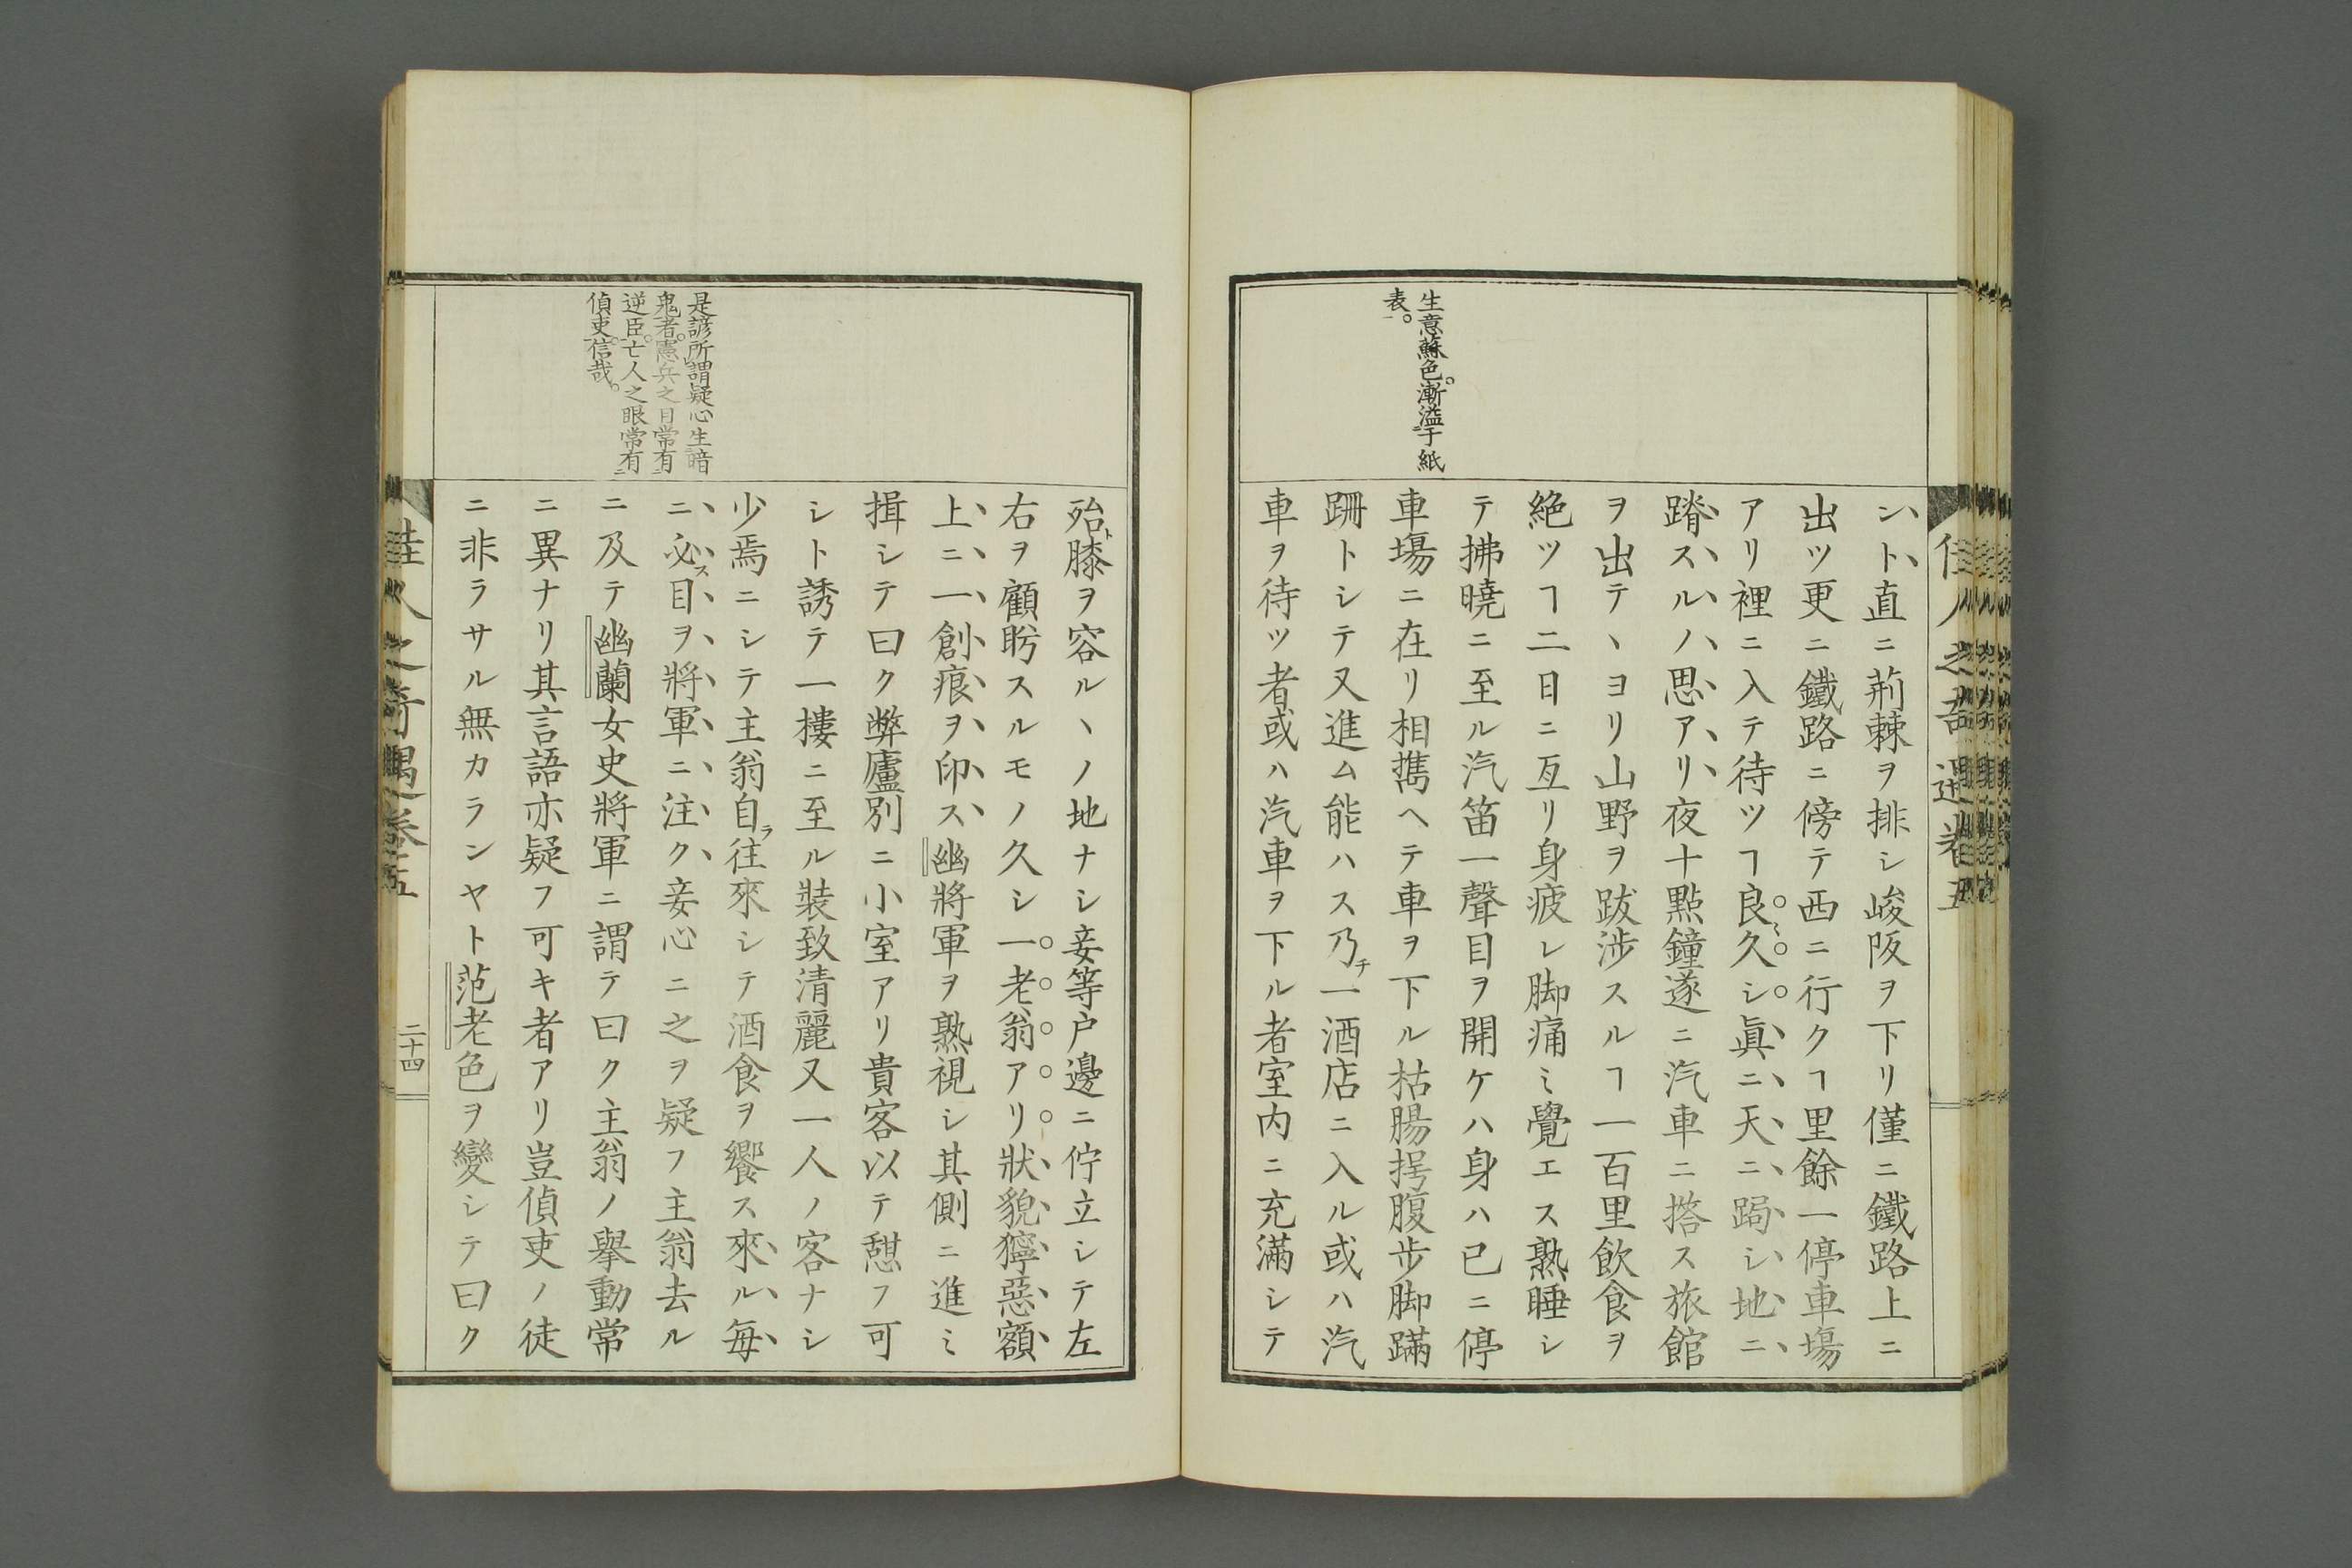 佳人之奇遇卷五
生意蘇色。漸溢于紙
表。
ント直ニ荊棘ヲ排シ峻阪ヲ下リ僅ニ鐵路上ニ
出ツ更ニ鐵路ニ傍テ西ニ行クヿ里餘一停車塲
アリ裡ニ入テ待ツヿ良久シ眞ニ天ニ跼シ地ニ
蹐スルノ思アリ夜十點鐘遂ニ汽車ニ搭ス旅館
ヲ出テヽヨリ山野ヲ跋涉スルヿ一百里飲食ヲ
絶ツヿ二日ニ亙リ身疲レ脚痛ミ覺エス熟睡シ
テ拂曉ニ至ル汽笛一聲目ヲ開ケハ身ハ已ニ停
車塲ニ在リ相携ヘテ車ヲ下ル枯腸枵腹步脚蹣
跚トシテ又進ム能ハス乃チ一酒店ニ入ル或ハ汽
車ヲ待ツ者或ハ汽車ヲ下ル者室内ニ充滿シテ
是諺所謂疑心生暗
鬼者。憲兵之目常有
逆臣。亡人之眼常有
偵吏。信哉。
殆ト膝ヲ容ルヽノ地ナシ妾等戶邊ニ佇立シテ左
右ヲ顧眄スルモノ久シ一老翁アリ狀貌獰惡額
上ニ一創痕ヲ印ス幽將軍ヲ熟視シ其側ニ進ミ
揖シテ曰ク弊廬別ニ小室アリ貴客以テ憩フ可
シト誘テ一樓ニ至ル裝致清麗又一人ノ客ナシ
少焉ニシテ主翁自ラ往來シテ酒食ヲ饗ス來ル每
ニ必ス目ヲ將軍ニ注ク妾心ニ之ヲ疑フ主翁去ル
ニ及テ幽蘭女史將軍ニ謂テ曰ク主翁ノ擧動常
ニ異ナリ其言語亦疑フ可キ者アリ豈偵吏ノ徒
ニ非ラサル無カランヤト范老色ヲ變シテ曰ク
佳人之奇遇卷五
二十四